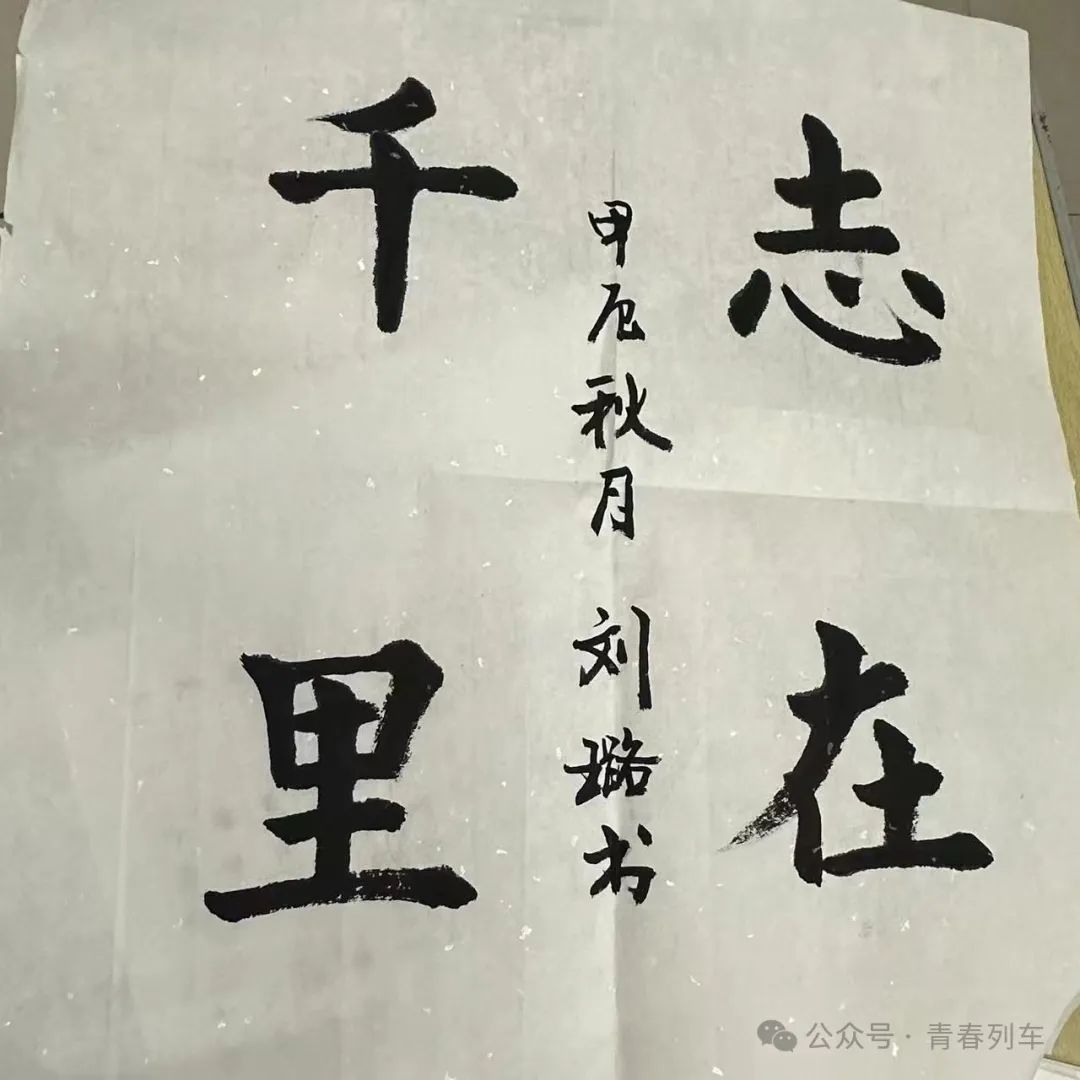 志在
千里
甲辰秋月 刘璐书
公众号·青春列车